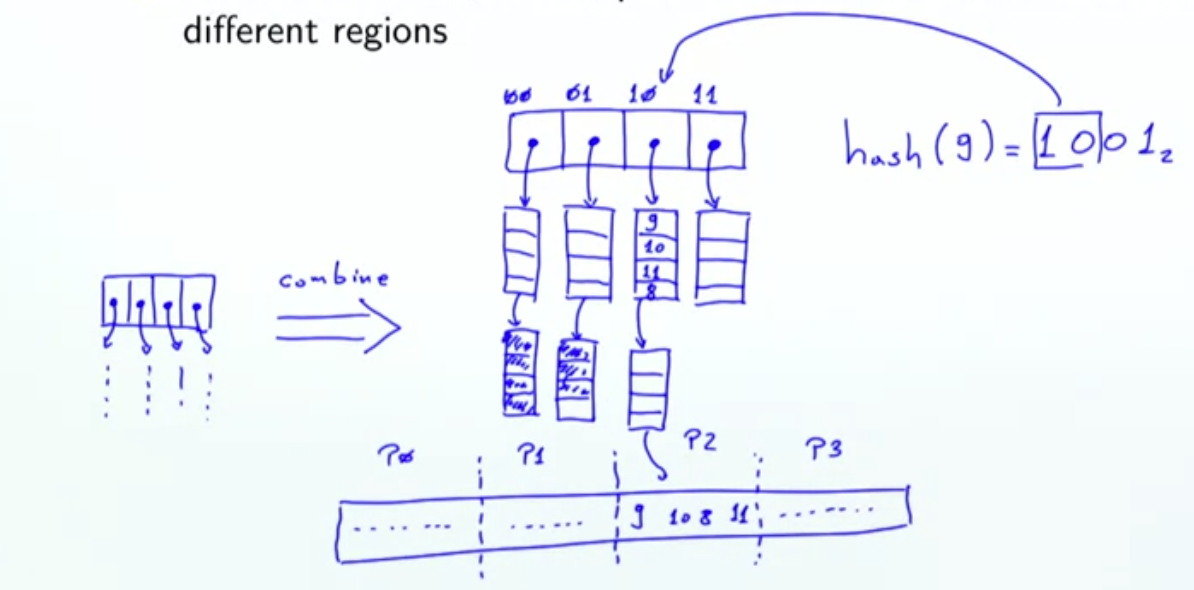 different regions
00 01 10 11
hash(9) = 1001₂
9
10
11
8
combine
P0 P1 P2 P3
9 10 8 11